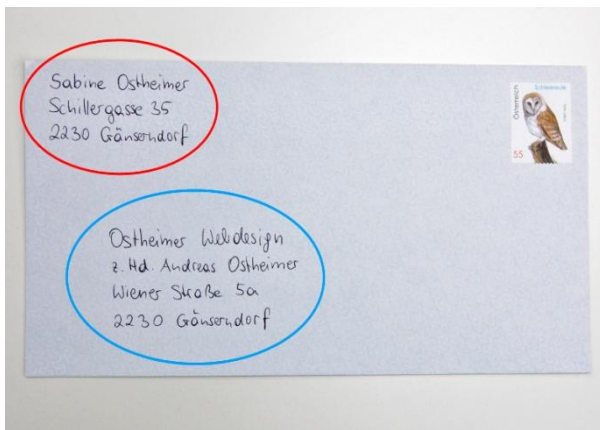 Sabine Ostheimer
Schillergasse 35
2230 Gänserndorf
Österreich
Schleiereule
55
Ostheimer Webdesign
z. Hd. Andreas Ostheimer
Wiener Straße 5a
2230 Gänserndorf